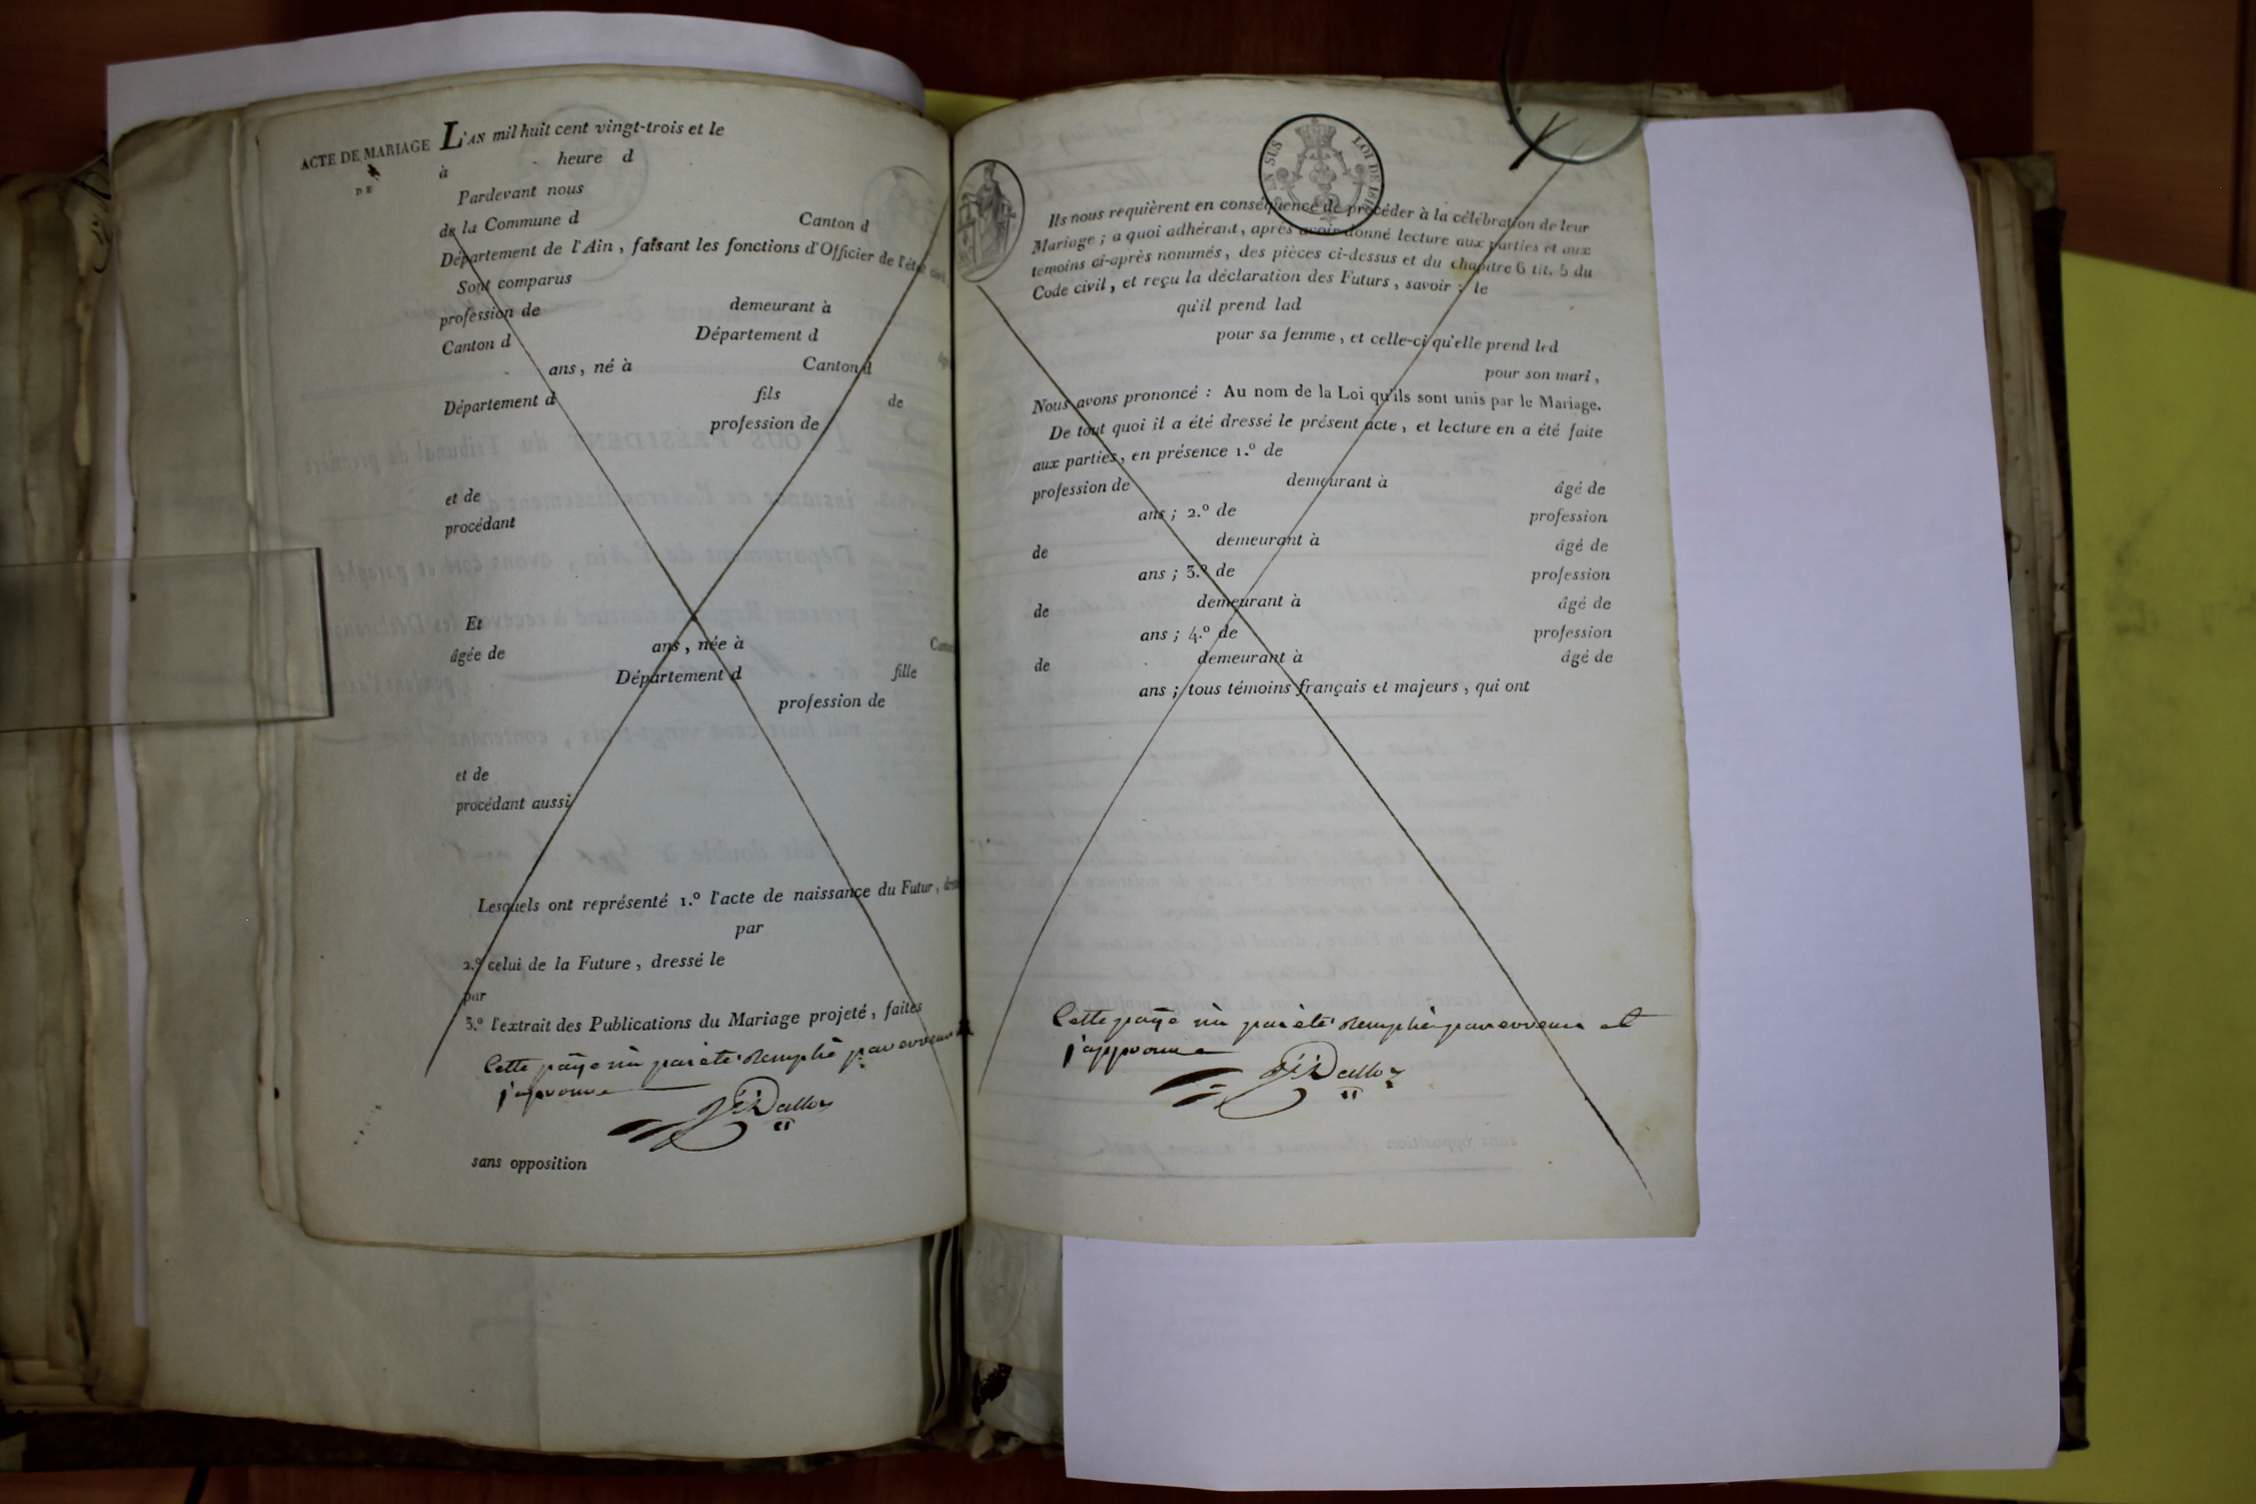 ACTE DE MARIAGE
DE
L'AN mil huit cent vingt-trois et le
à heure d
Pardevant nous
de la Commune d Canton d
Département de l'Ain, faisant les fonctions d'Officier de l'état civil,
Sont comparus
profession de demeurant à
Canton d Département d
ans, né à Canton d
Département d fils de
profession de
et de
procédant
Et
âgée de ans, née à
Département d fille
profession de
et de
procédant aussi
Lesquels ont représenté 1.° l'acte de naissance du Futur,
par
2.° celui de la Future, dressé le
par
3.° l'extrait des Publications du Mariage projeté, faites
Cette page n'a pas été remplie par erreur
j'approuve
Dalloz
sans opposition
EN SUS
LOI DE 1816
Ils nous requièrent en conséquence de procéder à la célébration de leur
Mariage; a quoi adhérant, après avoir donné lecture aux parties et aux
témoins ci-après nommés, des pièces ci-dessus et du chapitre 6 tit. 5 du
Code civil, et reçu la déclaration des Futurs, savoir; le
qu'il prend lad
pour sa femme, et celle-ci qu'elle prend led
pour son mari,
Nous avons prononcé : Au nom de la Loi qu'ils sont unis par le Mariage.
De tout quoi il a été dressé le présent acte, et lecture en a été faite
aux parties, en présence 1.° de
profession de demeurant à âgé de
ans; 2.° de profession
de demeurant à âgé de
ans; 3.° de profession
de demeurant à âgé de
ans; 4.° de profession
de demeurant à âgé de
ans; tous témoins français et majeurs, qui ont
Cette page n'a pas été remplie par erreur et
j'approuve
Dalloz